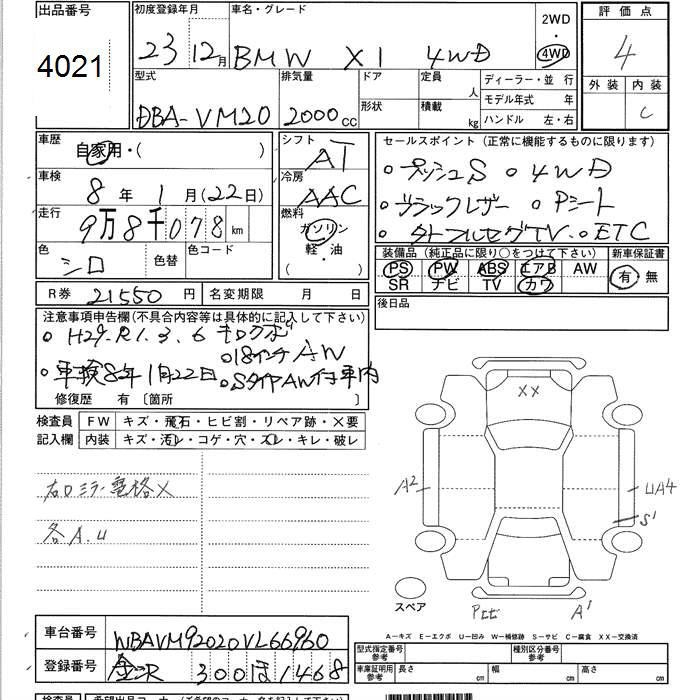 出品番号
4021
初度登録年月
23 12月
車名・グレード
BMW X1 4WD
2WD
・
4WD
評価点
4
外装 内装
C
型式
DBA-VM20
排気量
2000 cc
ドア
形状
定員 人
積載 kg
ディーラー・並行
モデル年式 年
ハンドル 左・右
車歴
自家用・( )
車検
8年 1月(22日)
走行
9万8千078 km
色
シロ
色替
色コード
シフト
AT
冷房
AAC
燃料
ガソリン
軽・油
( )
セールスポイント(正常に機能するものに限ります)
○プッシュS ○4WD
○ブラックレザー ○Pシート
○外ナフルセグTV ○ETC
装備品(純正品に限り○をつけて下さい)
PS PW ABS エアB AW
SR ナビ TV カワ
新車保証書
有 無
後日品
R券 21550円
名変期限 月 日
注意事項申告欄(不具合内容等は具体的に記入して下さい)
○H29.R1.3.6 キロクボ
○18インチAW
○車検8年1月22日 ○SタイヤAW付車内
修復歴 有 〔箇所 〕
検査員
記入欄
FW キズ・飛石・ヒビ割・リペア跡・X要
内装 キズ・汚レ・コゲ・穴・スレ・キレ・破レ
右ドミラー電格X
各A.U
XX
A2
UA4
S1
スペア
Pヒビ
A1
A-キズ E-エクボ U-凹み W-補修跡 S-サビ C-腐食 XX-交換済
車台番号
WBAVM92020VL66960
登録番号
金沢 300 ほ 1468
型式指定番号
参考
種別区分番号
参考
車庫証明用
参考
長さ cm
幅 cm
高さ cm